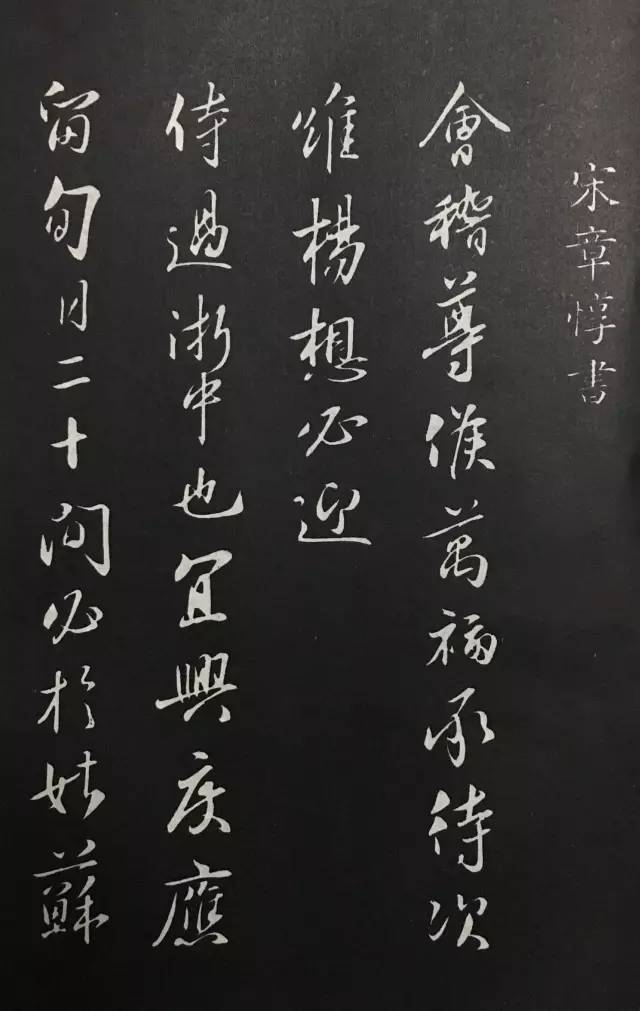 宋章惇書
會稽尊候萬福承待次
維楊想必迎
侍過浙中也宜興度應
留旬日二十間必於姑蘇